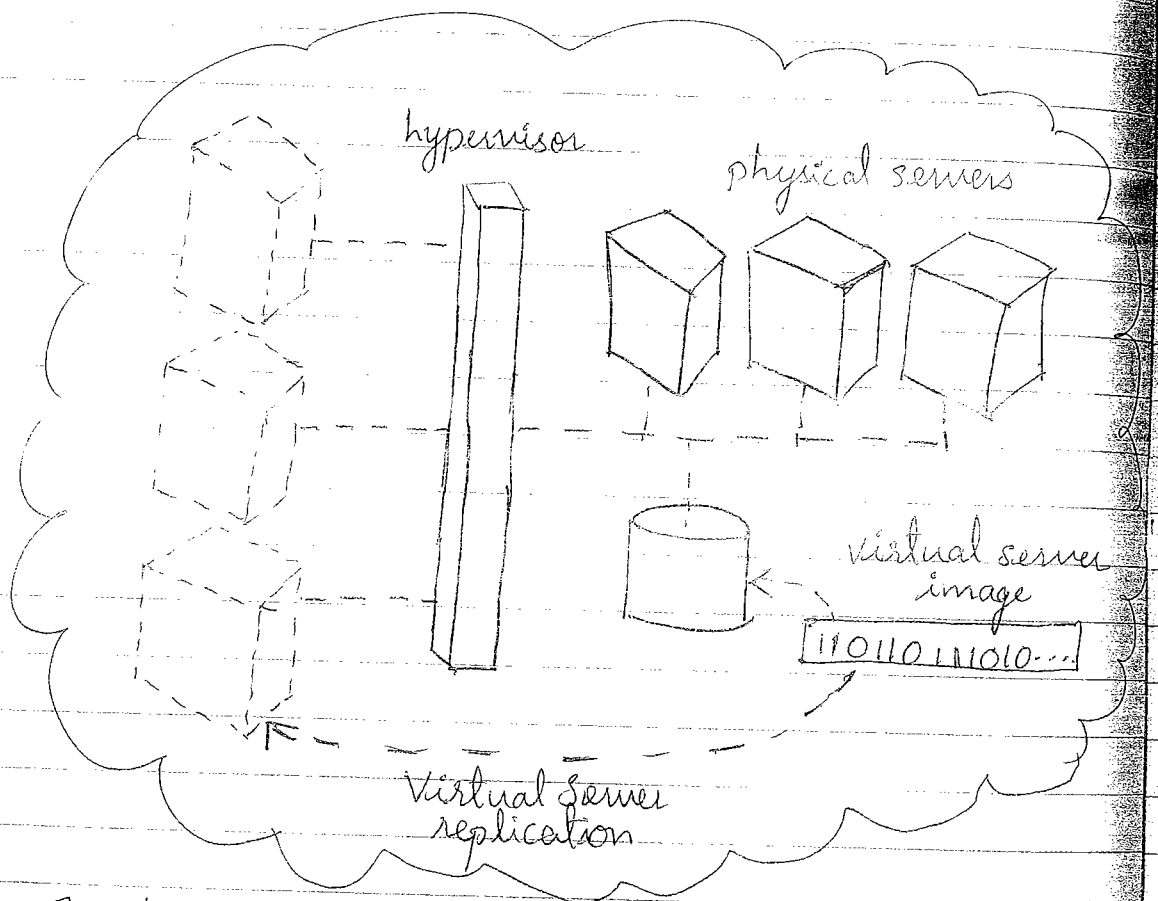 hypervisor
physical servers
virtual server
image
110110111010....
Virtual Server
replication